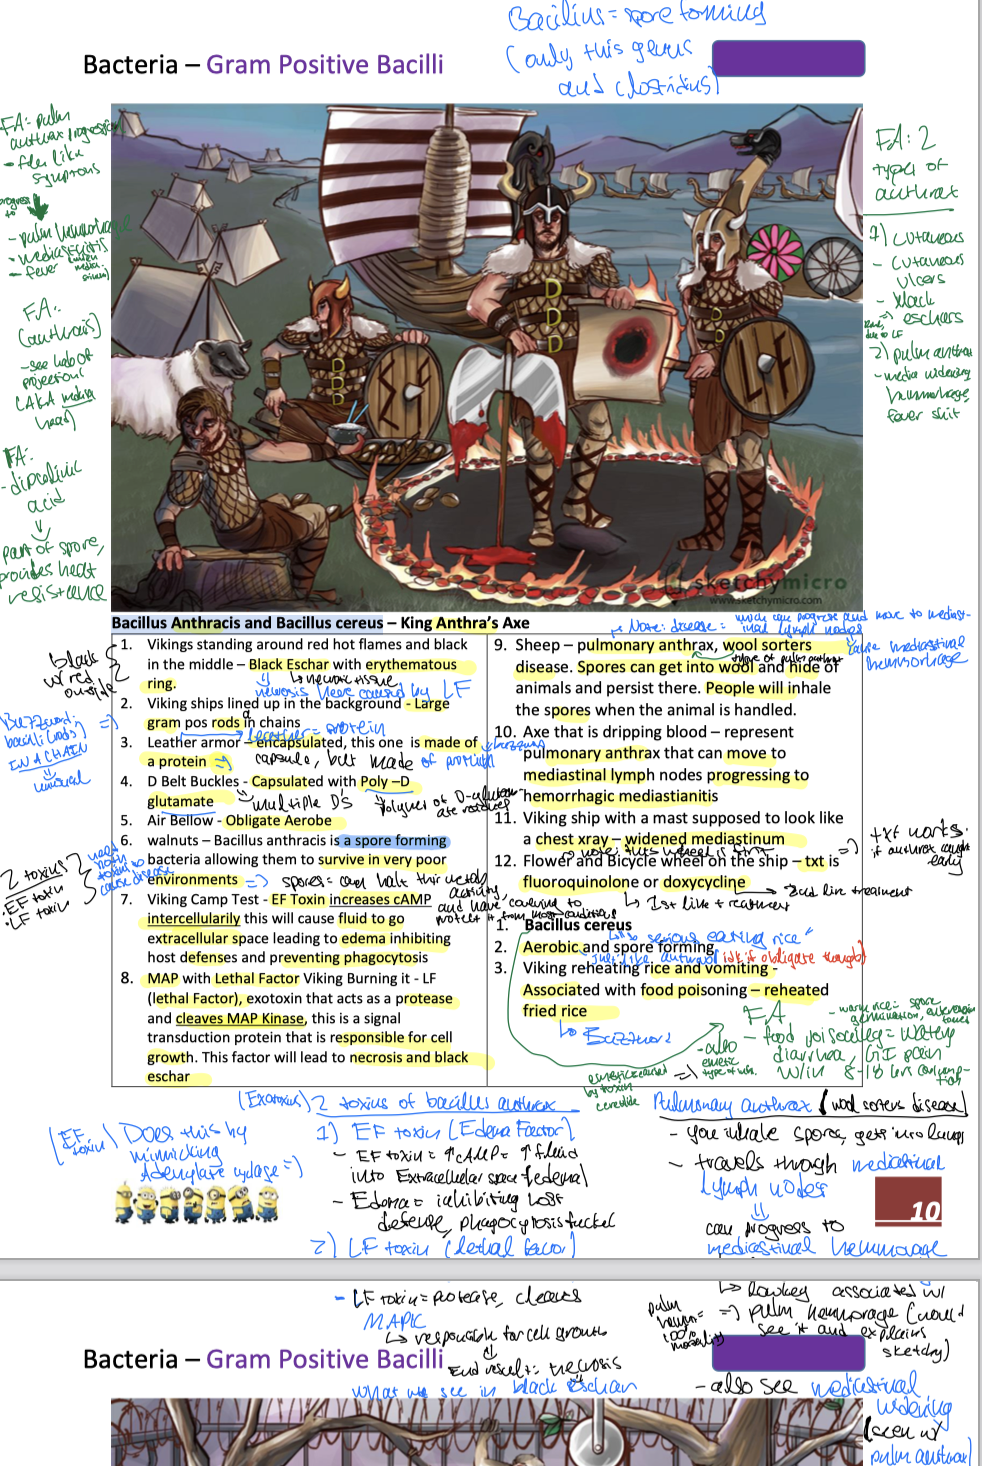 Bacillius = spore forming
(only this genus
and clostridius)
Bacteria – Gram Positive Bacilli
FA: pulm
anthrax progression
- flu like
symptoms
progress
to
- pulm hemorrhage
- mediastinitis
- fever
FA:
(anthrax)
- see halo of
projections
(AKA medusa
head)
FA:
- dipicolinic
acid
part of spore,
provides heat
resistence
FA: 2
types of
anthrax
1) cutaneous
- cutaneous
ulcers
- black
eschars
due to LF
2) pulm anthrax
- media widening
hemmorhage,
fever shit
D
D
D
D
D
D
D
D
L F
sketchymicro
www.sketchymicro.com
Bacillus Anthracis and Bacillus cereus – King Anthra's Axe
Note: disease = which can progress and move to mediast-
inal lymph nodes
cause mediastinal
hemmorhage
black
w/ red
outside
1. Vikings standing around red hot flames and black
in the middle – Black Eschar with erythematous
ring.
necrotic tissue
necrosis here caused by LF
2. Viking ships lined up in the background - Large
gram pos rods in chains
a
leather = protein
Buzzword:
bacilli (rods) =>
IN A CHAIN
unusual
3. Leather armor – encapsulated, this one is made of
a protein
capsule, but made of protein
buzzword
4. D Belt Buckles - Capsulated with Poly –D
glutamate
multiple D's
polymer of D-glutam-
ate residues
5. Air Bellow - Obligate Aerobe
6. walnuts – Bacillus anthracis is a spore forming
bacteria allowing them to survive in very poor
environments
=> spores = can halt their metab
activity
and have covering to
protect it from most conditions
2 toxins
• EF toxin
• LF toxin
need
both
toxins to
cause disease
7. Viking Camp Test - EF Toxin increases cAMP
intercellularily this will cause fluid to go
extracellular space leading to edema inhibiting
host defenses and preventing phagocytosis
8. MAP with Lethal Factor Viking Burning it - LF
(lethal Factor), exotoxin that acts as a protease
and cleaves MAP Kinase, this is a signal
transduction protein that is responsible for cell
growth. This factor will lead to necrosis and black
eschar
9. Sheep – pulmonary anthrax, wool sorters
disease. Spores can get into wool and hide of
animals and persist there. People will inhale
the spores when the animal is handled.
name of pulm anthrax
10. Axe that is dripping blood – represent
pulmonary anthrax that can move to
mediastinal lymph nodes progressing to
hemorrhagic mediastianitis
11. Viking ship with a mast supposed to look like
a chest xray – widened mediastinum
=> txt works.
if anthrax caught
early
12. Flower and Bicycle wheel on the ship – txt is
fluoroquinolone or doxycycline
2nd line treatment
1st line treatment
1. Bacillus cereus
"so serious eating rice"
2. Aerobic and spore forming
just like anthrax (idk if obligate though)
3. Viking reheating rice and vomiting -
Associated with food poisoning – reheated
fried rice
Buzzword
FA
- warm rice = spore
germination,
- food poisoning = watery
diarrhea, GI pain
w/in 8-18 hrs consump-
tion
- also
emetic
type of
emetic caused
by toxin
cereulide
(Exotoxins) 2 toxins of bacillus anthrax
1) EF toxin (Edema Factor)
- EF toxin = ↑cAMP = ↑ fluid
into Extracellular space (edema)
- Edema = inhibiting host
defense, phagocytosis fucked
2) LF toxin (lethal factor)
(EF toxin) Does this by
mimicking
Adenylate cyclase =>
Pulmonary anthrax (wool sorters disease)
- you inhale spores, gets into lungs
- travels through mediastinal
lymph nodes
can progress to
mediastinal hemmorage
10
- LF toxin = protease, cleaves
MAPK
responsible for cell growth
End result: necrosis
what we see in black eschar
lowkey associated w/
=> pulm hemorrage (would
see it and explains
sketchy)
pulm
hemm =
100%
mortality
- also see mediastinal
widening
(seen w/
pulm anthrax)
Bacteria – Gram Positive Bacilli